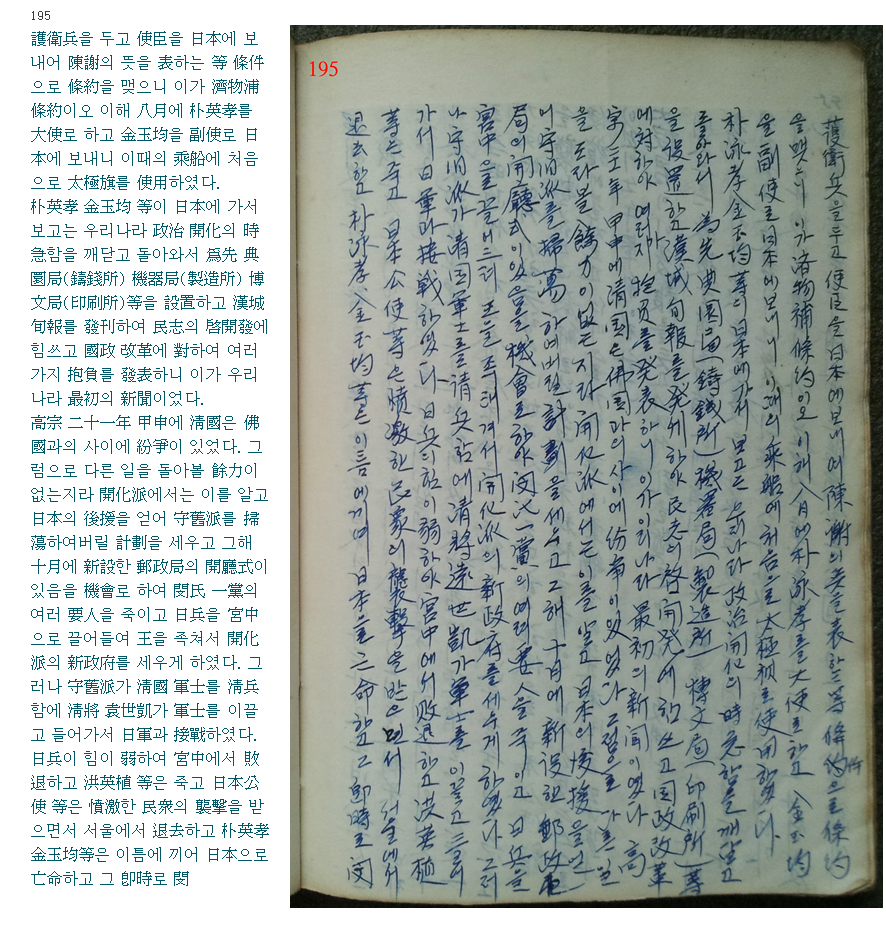 195
護衛兵을 두고 使臣을 日本에 보
내어 陳謝의 뜻을 表하는 等 條件
으로 條約을 맺으니 이가 濟物浦
條約이오 이해 八月에 朴英孝를
大使로 하고 金玉均을 副使로 日
本에 보내니 이때의 乘船에 처음
으로 太極旗를 使用하였다.
朴英孝 金玉均 等이 日本에 가서
보고는 우리나라 政治 開化의 時
急함을 깨닫고 돌아와서 爲先 典
圜局(鑄錢所) 機器局(製造所) 博
文局(印刷所)等을 設置하고 漢城
旬報를 發刊하여 民志의 啓開發에
힘쓰고 國政 改革에 對하여 여러
가지 抱負를 發表하니 이가 우리
나라 最初의 新聞이었다.
高宗 二十一年 甲申에 淸國은 佛
國과의 사이에 紛爭이 있었다. 그
럼으로 다른 일을 돌아볼 餘力이
없는지라 開化派에서는 이를 알고
日本의 後援을 얻어 守舊派를 掃
蕩하여버릴 計劃을 세우고 그해
十月에 新設한 郵政局의 開廳式이
있음을 機會로 하여 閔氏 一黨의
여러 要人을 죽이고 日兵을 宮中
으로 끌어들여 王을 족쳐서 開化
派의 新政府를 세우게 하였다. 그
러나 守舊派가 淸國 軍士를 淸兵
함에 淸將 袁世凱가 軍士를 이끌
고 들어가서 日軍과 接戰하였다.
日兵이 힘이 弱하여 宮中에서 敗
退하고 洪英植 等은 죽고 日本公
使 等은 憤激한 民衆의 襲擊을 받
으면서 서울에서 退去하고 朴英孝
金玉均等은 이름에 끼어 日本으로
亡命하고 그 卽時로 閔
195
護衛兵을 두고 使臣을 日本에 보내여 陳謝의 뜻을 表하는 等 條件으로 條約
을 맺으니 이가 濟物補條約이오 이해 八月에 朴泳孝를 大使로 하고 金玉均
을 副使로 日本에 보내니 이때의 乘船에 처음으로 太極旗로 使用하였다.
朴泳孝 金玉均 等이 日本에 가서 보고는 우리나라 政治 開化의 時急함을 깨닫고
돌아와서 爲先 典圜局(鑄錢所) 機器局(製造所) 博文局(印刷所) 等
을 設置하고 漢城旬報를 発刊하야 民志의 啓開発에 힘쓰고 国政改革
에 対하야 여러가지 抱負를 発表하니 이가 우리나라 最初의 新聞이였다 高
宗二十一年 甲申에 清国은 佛国과의 사이에 紛争이 있었다 그럼으로 다른 일
을 도라볼 餘力이 없는지라 開化派에서는 이를 알고 日本의 後援을 얻
어 守旧派를 掃蕩하여버릴 計劃을 세우고 그해 十月에 新設한 郵政
局의 開廳式이 있음을 機會로 하야 閔氏一當의 여러 要人을 죽이고 日兵을
宮中으로 끌어드려 王을 開化派의 新政府를 세우게 하였다 그러
나 守旧派가 清国軍士를 請兵함에 清將 袁世凱가 軍士를 이끌고 드러
가서 日軍과 接戦하였다 日兵의 힘이 弱하야 宮中에서 敗退하고 洪英植
等은 죽고 日本公使 等은 憤激한 民衆의 襲擊을 받으면서 서울에서
退去하고 朴泳孝 金玉均 等은 이틈에 게여 日本으로 亡命하고 그 卽時로 閔